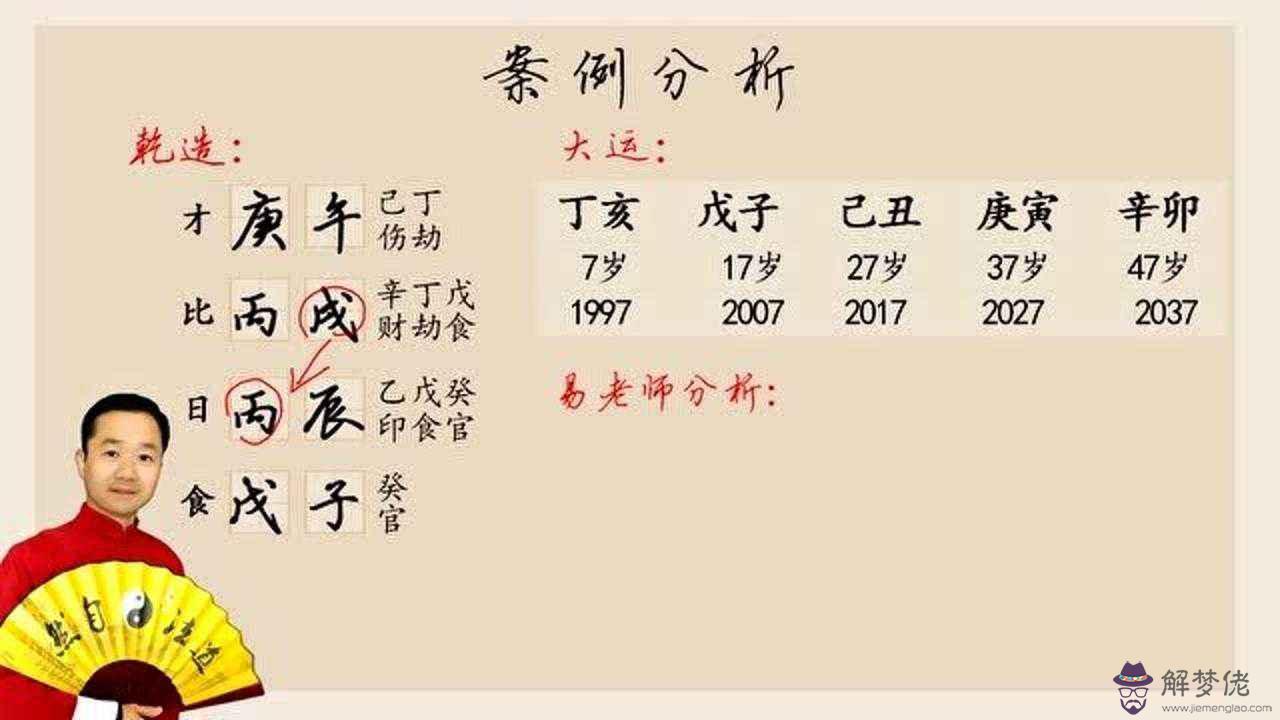 案例分析
乾造：
才 庚 午 己丁
伤劫
比 丙 戌 辛丁戊
财劫食
日 丙 辰 乙戊癸
印食官
食 戊 子 癸
官
大运：
丁亥 戊子 己丑 庚寅 辛卯
7岁 17岁 27岁 37岁 47岁
1997 2007 2017 2027 2037
易老师分析：
然自法道
解梦佬
www.jiemenglao.com